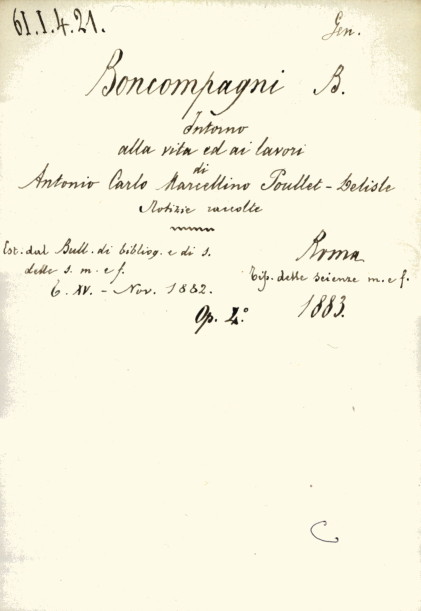 61.I.4.21.
Gen.
Boncompagni B.
Intorno
alla vita ed ai lavori
di
Antonio Carlo Marcellino Poullet-Delisle
Notizie raccolte
Est. dal Bull. di bibliog. e di s.
delle s. m. e f.
T. XV. - Nov. 1882.
Roma
Tip. delle scienze m. e f.
1883.
Op. 4.°
C